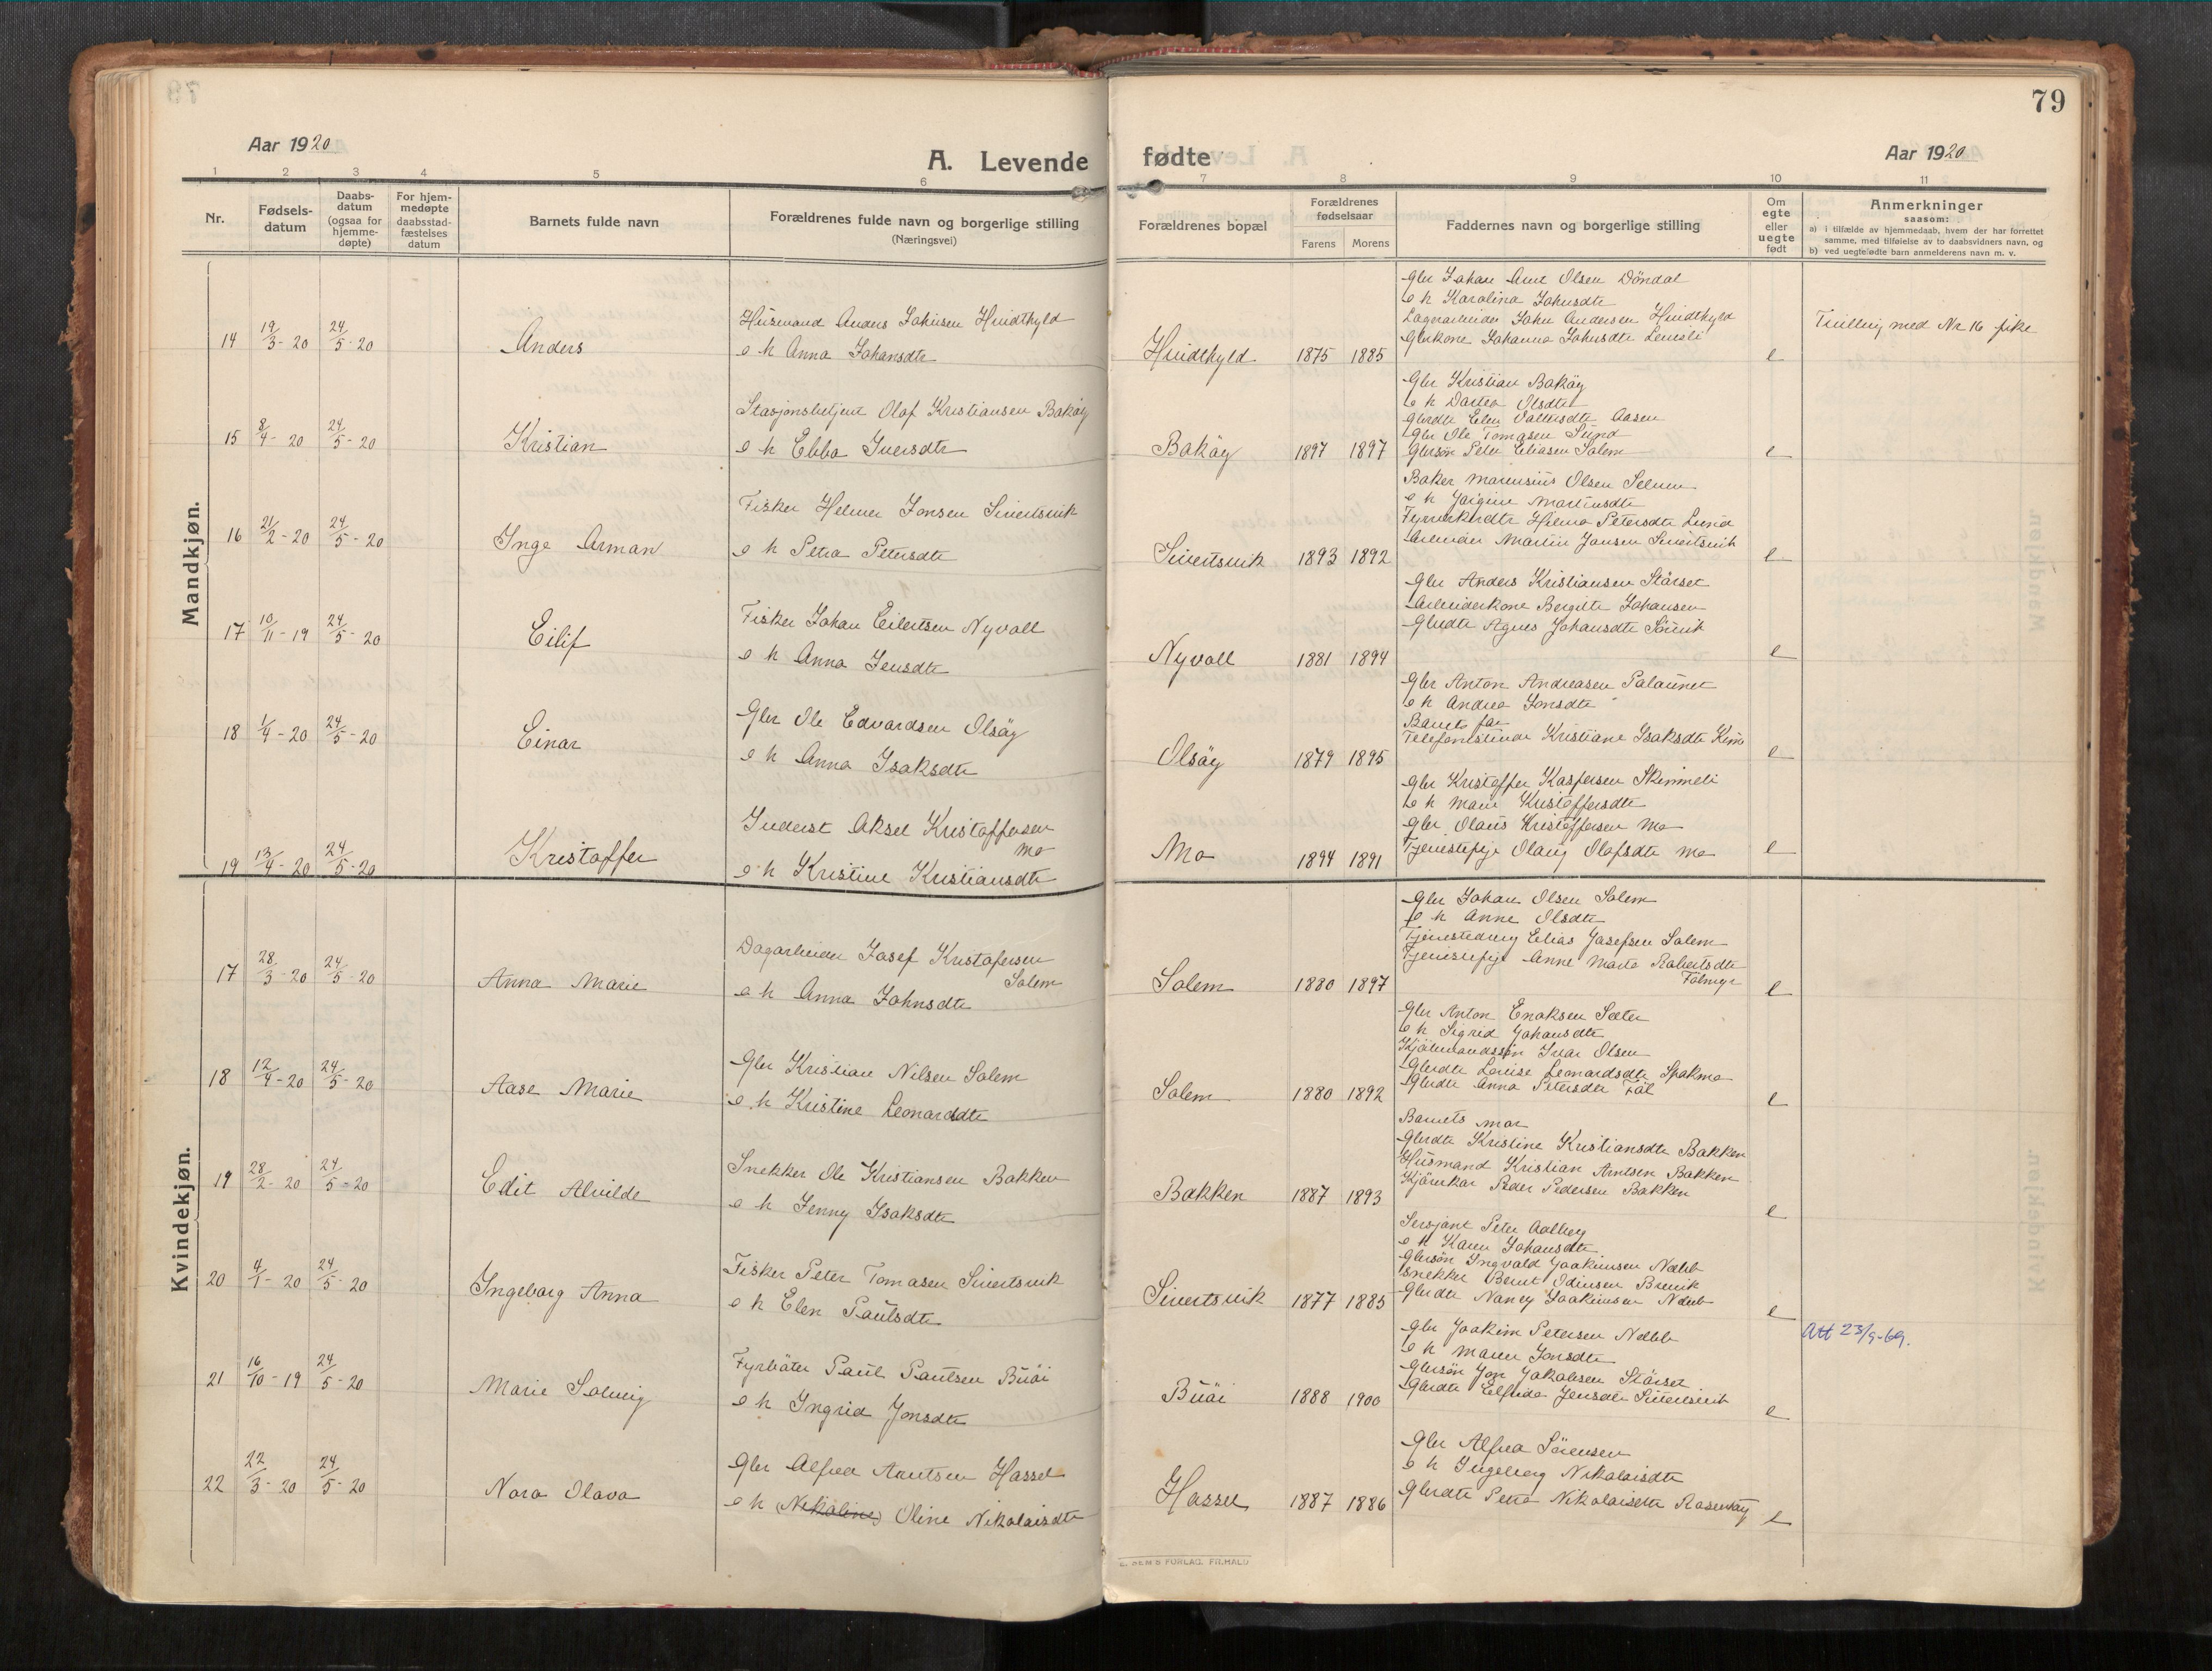 79
Aar 1920
A. Levende fødte
Aar 1920
1 2 3 4 5 6 7 8 9 10 11
Nr.
Fødsels-
datum
Daabs-
datum
(ogsaa for
hjemme-
døpte)
For hjem-
medøpte
daabsstad-
fæstelses
datum
Barnets fulde navn
Forældrenes fulde navn og borgerlige stilling
(Næringsvei)
Forældrenes bopæl
Forældrenes
fødselsaar
Farens Morens
Faddernes navn og borgerlige stilling
Om
egte
eller
uegte
født
Anmerkninger
saasom:
a) i tilfælde av hjemmedaab, hvem der har forrettet
samme, med tilføielse av to daabsvidners navn, og
b) ved uegtefødte barn anmelderens navn m. v.
Mandkjøn.
14 19/3-20 24/5-20 Anders
Husmand Anders Johnsen Hindthyld
e h Anna Johansdtr
Hindthyld 1875 1885
Gbr Johan Arnt Olsen Döndal
e h Karolina Johnsdtr
John Andersen Hindthyld
Gbrkone Johanna Johnsdtr
e
Tvilling med Nr 16 pike
15 8/4-20 24/5-20 Kristian
Stasjonsbetjent Olaf Kristiansen Baköy
e h Ebba Iversdtr
Baköy 1897 1897
Gbr Kristian Baköy
e h Olsdtr
Gbrdtr Elen Aasen
Gbr Ole Tomasen Sund
Gbrsön Peter Eliasen Solem
e
16 21/2-20 24/5-20 Inge Arman
Fisker Helmer Jonsen Sivertsvik
e h Petra Petersdtr
Sivertsvik 1893 1892
Baker Marensius Olsen Selnes
e h Martinsdtr
Hilma Petersdtr Lund
Arbeider Martin Jonsen Sivertsvik
e
17 10/11-19 24/5-20 Eilif
Fisker Johan Eilertsen Nyvoll
e h Anna Jensdtr
Nyvoll 1881 1894
Gbr Anders Kristiansen Störset
Arbeiderkone Bergitte Johansen
Gbrdtr Agnes Johansdtr Sörvik
e
18 1/4-20 24/5-20 Einar
Gbr Ole Edvardsen Olsöy
e h Anna Isaksdtr
Olsöy 1879 1895
Gbr Anton Andreasen Palaunet
e h Andrea Jonsdtr
Barnets far
Telefonistinde Kristiane Isaksdtr
e
19 13/4-20 24/5-20 Kristoffer
Inderst Aksel Kristoffersen
Mo
e h Kristine Kristiansdtr
Mo 1894 1891
Gbr Kristoffer Kaspersen Skimmeli
e h Marie Kristoffersdtr
Gbr Olaus Kristoffersen Mo
Tjenestepige Olaug Olafsdtr Mo
e
Kvindekjøn.
17 28/3-20 24/5-20 Anna Marie
Dagarbeider Josef Kristofersen
Solem
e h Anna Johnsdtr
Solem 1880 1897
Gbr Johan Olsen Solem
e h Anne Olsdtr
Tjenestedreng Elias Josefsen Solem
Tjenestepige Anne Marta Robertsdtr
e
18 12/4-20 24/5-20 Aase Marie
Gbr Kristian Nilsen Solem
e h Kristine Leonardsdtr
Solem 1880 1892
Gbr Anton Enoksen Sæter
e h Sigrid Johansdtr
Ivar Olsen
Gbrdtr Louise Leonardsdtr Spakmo
Gbrdtr Anna Petersdtr
e
19 28/2-20 24/5-20 Edit Alvilde
Snekker Ole Kristiansen Bakken
e h Jenny Isaksdtr
Bakken 1887 1893
Barnets mor
Gbrdtr Kristine Kristiansdtr Bakken
Husmand Kristian Arntsen Bakken
Peder Pedersen Bakken
e
20 4/1-20 24/5-20 Ingeborg Anna
Fisker Peter Tomasen Sivertsvik
e h Elen Paulsdtr
Sivertsvik 1877 1885
Sersjant Peter Aalberg
e h Karen Johansdtr
Gbrsön Ingvald Joakimsen Nebb
Snekker Bernt Odinsen Brevik
Gbrdtr Nancy Joakimsen Nebb
e
21 16/10-19 24/5-20 Marie Solveig
Fyrböter Paul Paulsen Buöi
e h Ingrid Jonsdtr
Buöi 1888 1900
Gbr Joakim Petersen Nebb
e h Maren Jonsdtr
Gbrsön Jon Jakobsen Störset
Gbrdtr Elfrida Jensdtr Sivertsvik
e
Att 23/9-69.
22 22/3-20 24/5-20 Nora Olava
Gbr Alfred Arntsen Hassel
e h (Nikoline) Oline Nikolaisdtr
Hassel 1887 1886
Gbr Alfred Sörensen
e h Ingeborg Nikolaisdtr
Gbrdtr Petra Nikolaisdtr
e
E. SEM'S FORLAG, FR.HALD